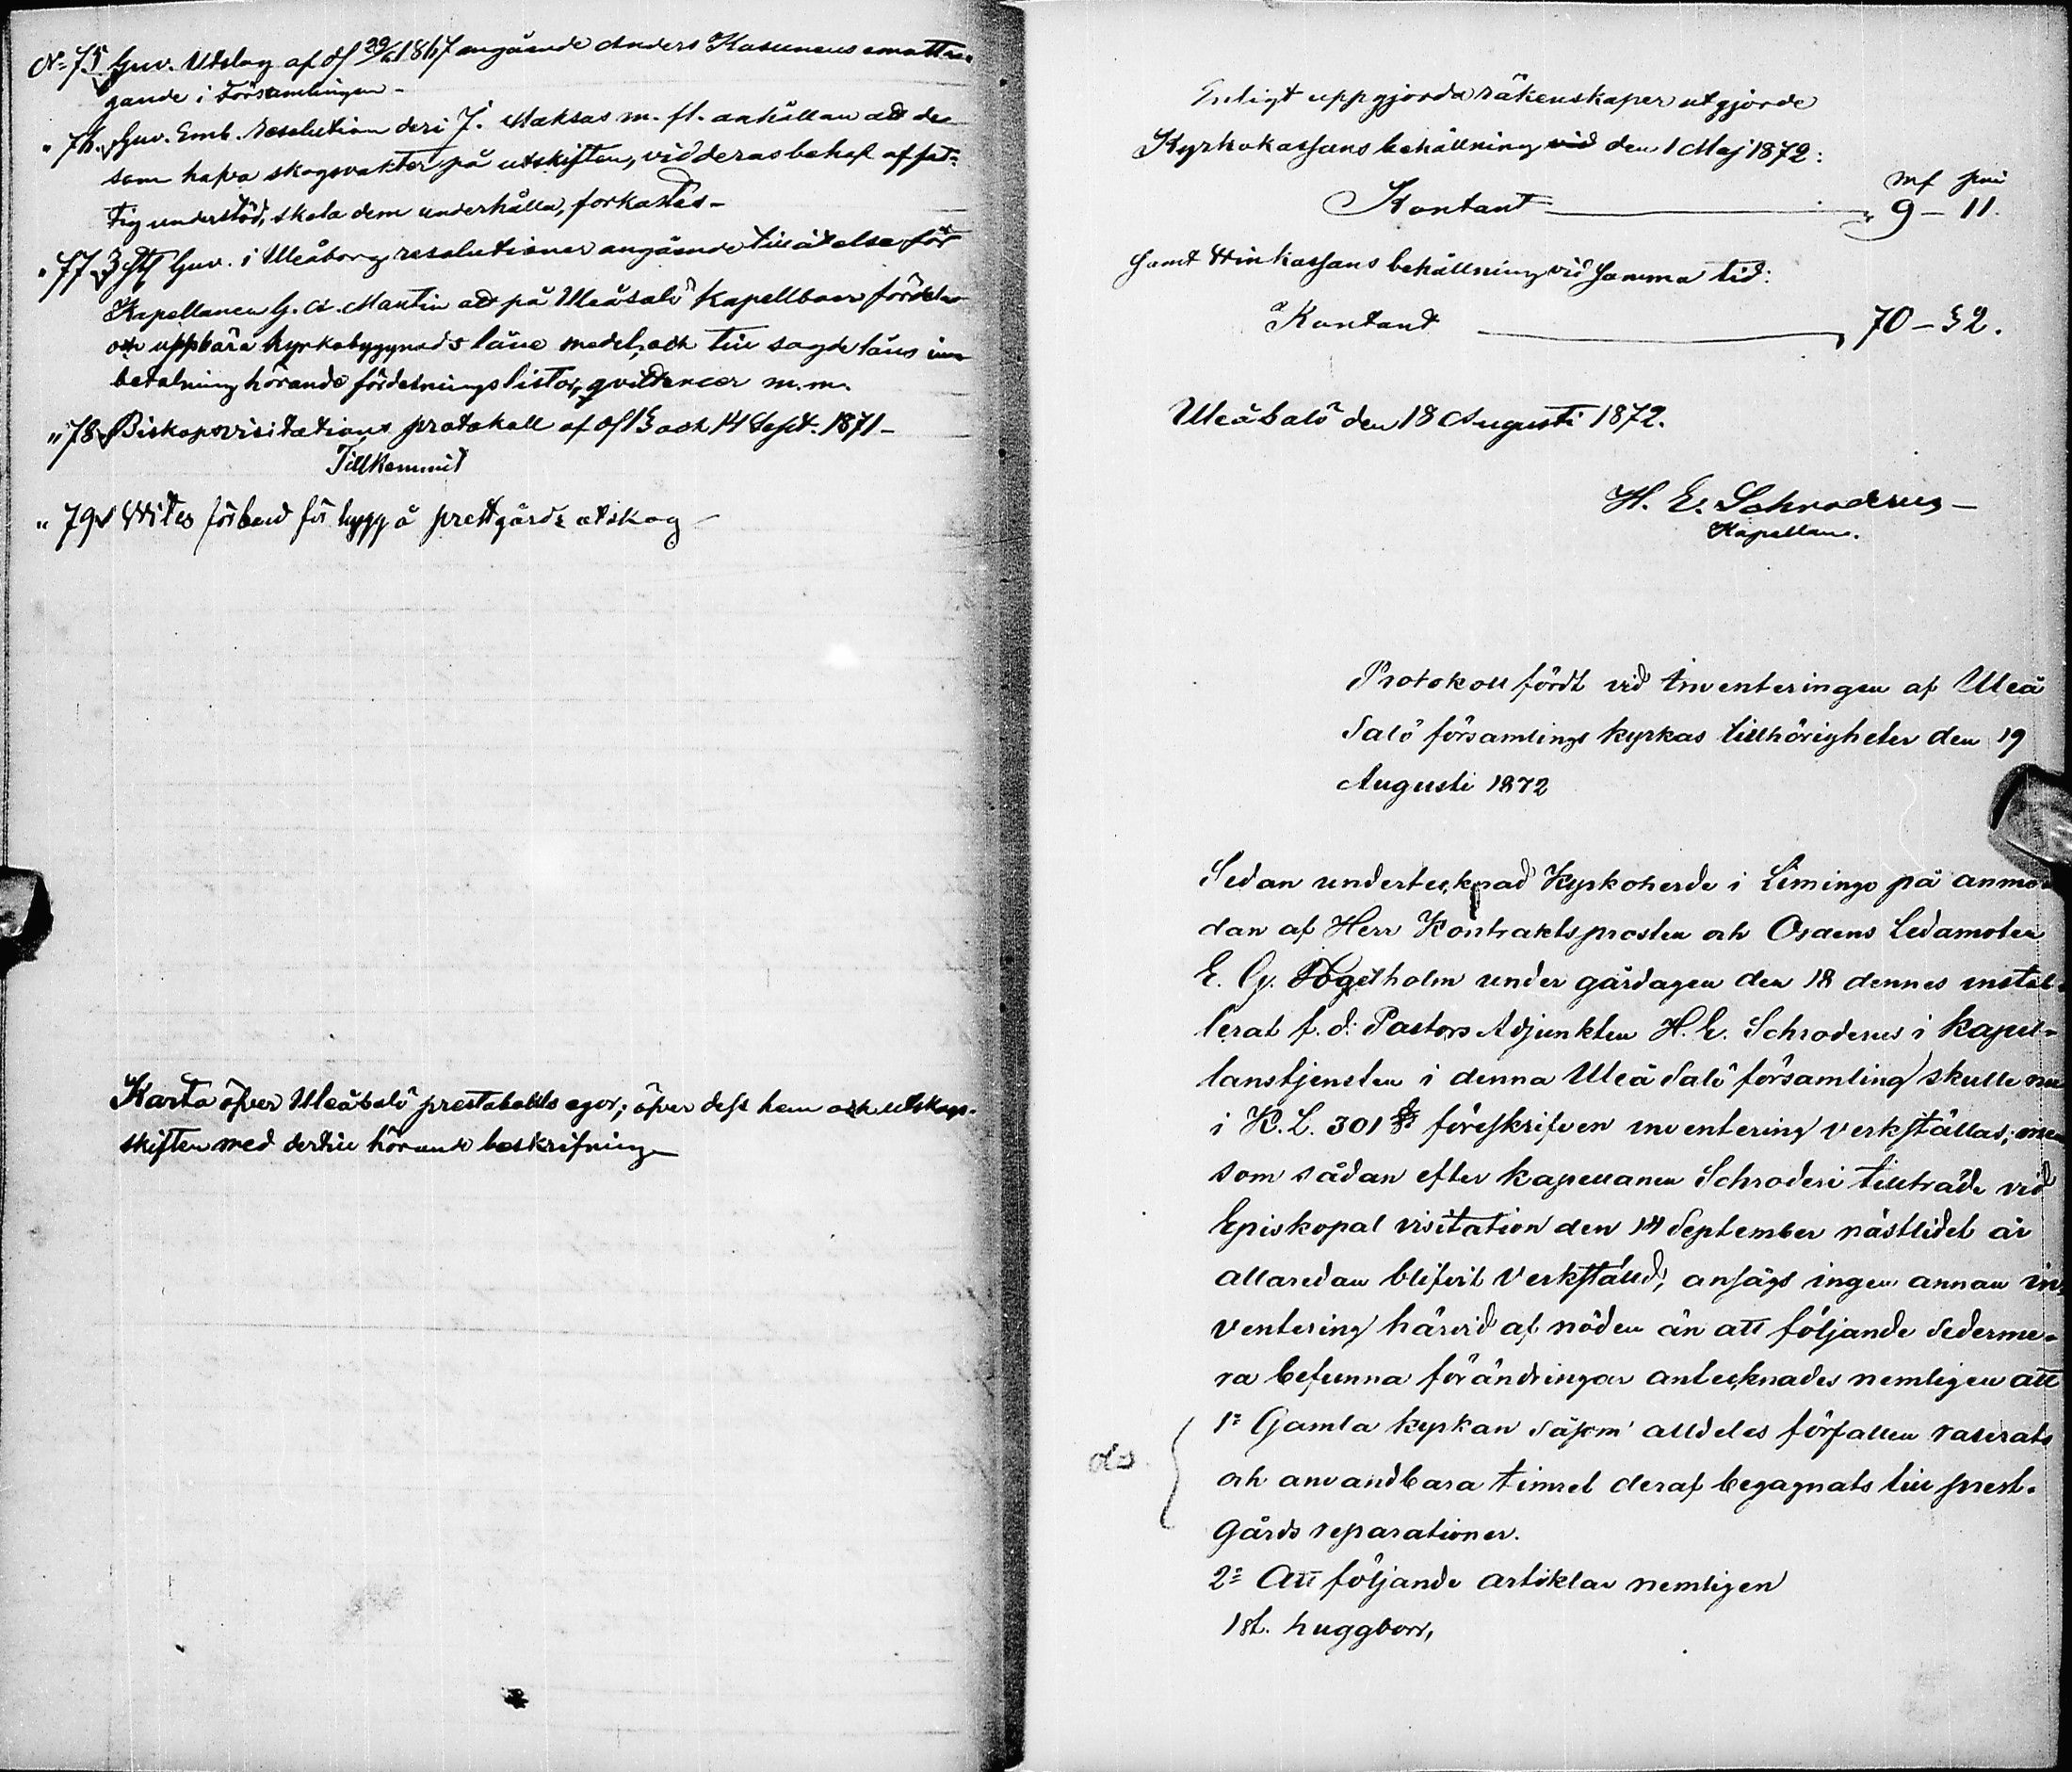 N:o 75 Guv. Utslag af d. 29/6 1867 angående Anders Kasunens emotta-
gande i Församlingen -
" 76. Guv. Emb. resolution deri J. Maksas m. fl. anhållan att de
som hafva skogsvakter på utskiften, vid deras behof af fat-
tig understöd, skola dem underhålla, forkastas -
" 77 3 st Guv. i Uleåborg resolutioner angående tillåtelse för
Kapellanen G. A. Martin att på Uleåsalo Kapellboer fördela
och uppbära kyrkobyggnads låne medel, och till sagde låns inn
betalning hörande fördelningslistor, qvittencer m.m.
" 78 Biskopsvisitations protokoll af d. 13 och 14 Sept. 1871 -
Tillkommit
" 79 Wites förbud för hygg å prestgårds utskog -
Karta öfver Uleåsalo prestabohls egor, öfver dess hem och utskogs-
skiften med dertill hörande beskrifning
Enligt uppgjorda räkenskaper utgjorde
Kyrkokassans behållning vid den 1 Maj 1872:
mf pni
Kontant " 9 - 11.
samt Winkassans behållning vid samma tid:
Kontant " 70 - 52.
Uleåsalo den 18 Augusti 1872.
H. E. Schroderus -
Kapellan.
Protokoll fördt vid Inventeringen af Uleå
Salo församlings kyrkas tillhörigheter den 19
Augusti 1872
Sedan undertecknad Kyrkoherde i Limingo på anmo-
dan af Herr Kontraktsprosten och Ordens Ledamoten
E. G. Fogelholm under gårdagen den 18 dennes instal-
lerat f. d. Pastors Adjunkten H. E. Schroderus i kapel-
lanstjensten i denna Uleå Salo församling skulle nu
i K. L. 301 § föreskrifven inventering verkställas; men
som sådan efter kapellanen Schroderi tillträde vid
Episkopal visitation den 14 September nästlidet år
allaredan blifvit verkställd, ansågs ingen annan in-
ventering härvid af nöden än att följande Sederme-
ra befunna förändringar antecknades nemligen att
1:o Gamla kyrkan såsom alldeles förfallen raserats
och användbara timret deraf begagnats till prest-
gårds reparationer.
2:o Att följande artiklar nemligen
1 st. huggborr,